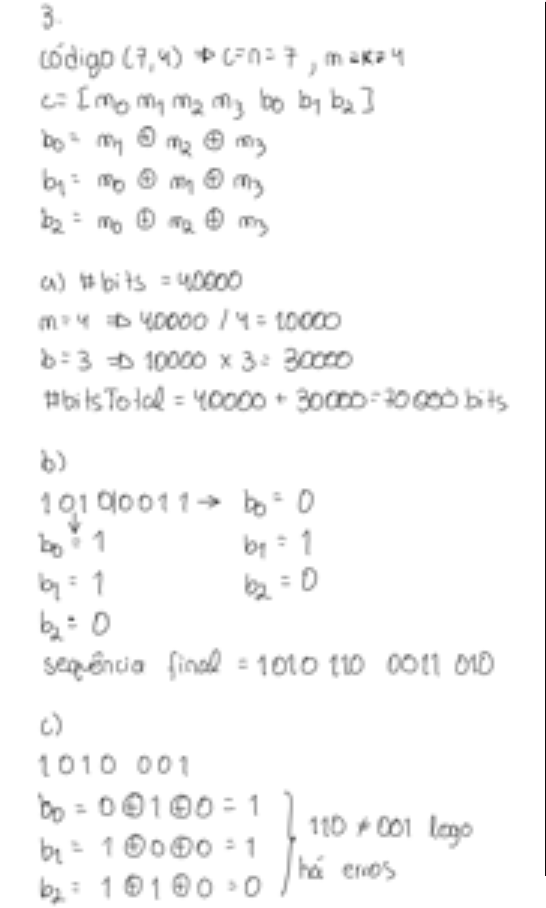 3.
código (7,4) ⇒ c=n=7, m=k=4
c= [m₀ m₁ m₂ m₃ b₀ b₁ b₂]
b₀= m₁ ⊕ m₂ ⊕ m₃
b₁= m₀ ⊕ m₁ ⊕ m₃
b₂= m₀ ⊕ m₂ ⊕ m₃
a) #bits = 40000
m=4 ⇒ 40000 / 4 = 10000
b=3 ⇒ 10000 x 3= 30000
#bitsTotal = 40000 + 30000=70000 bits
b)
1010|0011 → b₀ = 0
↓
b₀ = 1 b₁ = 1
b₁ = 1 b₂ = 0
b₂ = 0
sequência final = 1010 110 0011 010
c)
1010 001
b₀ = 0⊕1⊕0 = 1
b₁ = 1⊕0⊕0 = 1
b₂ = 1⊕1⊕0 = 0
110 ≠ 001 logo
há erros